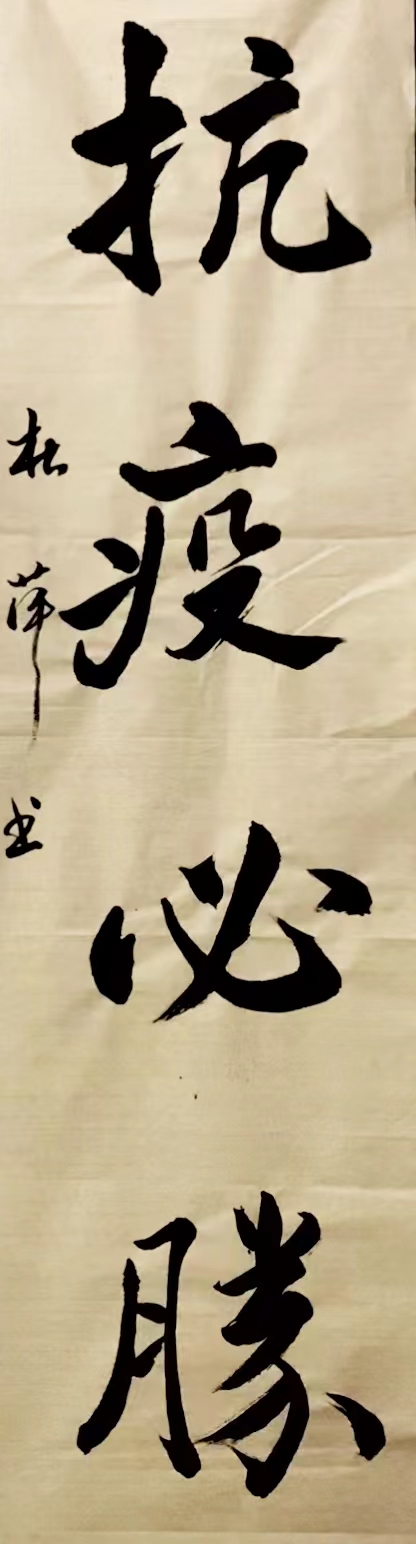 抗疫必勝
杜萍书